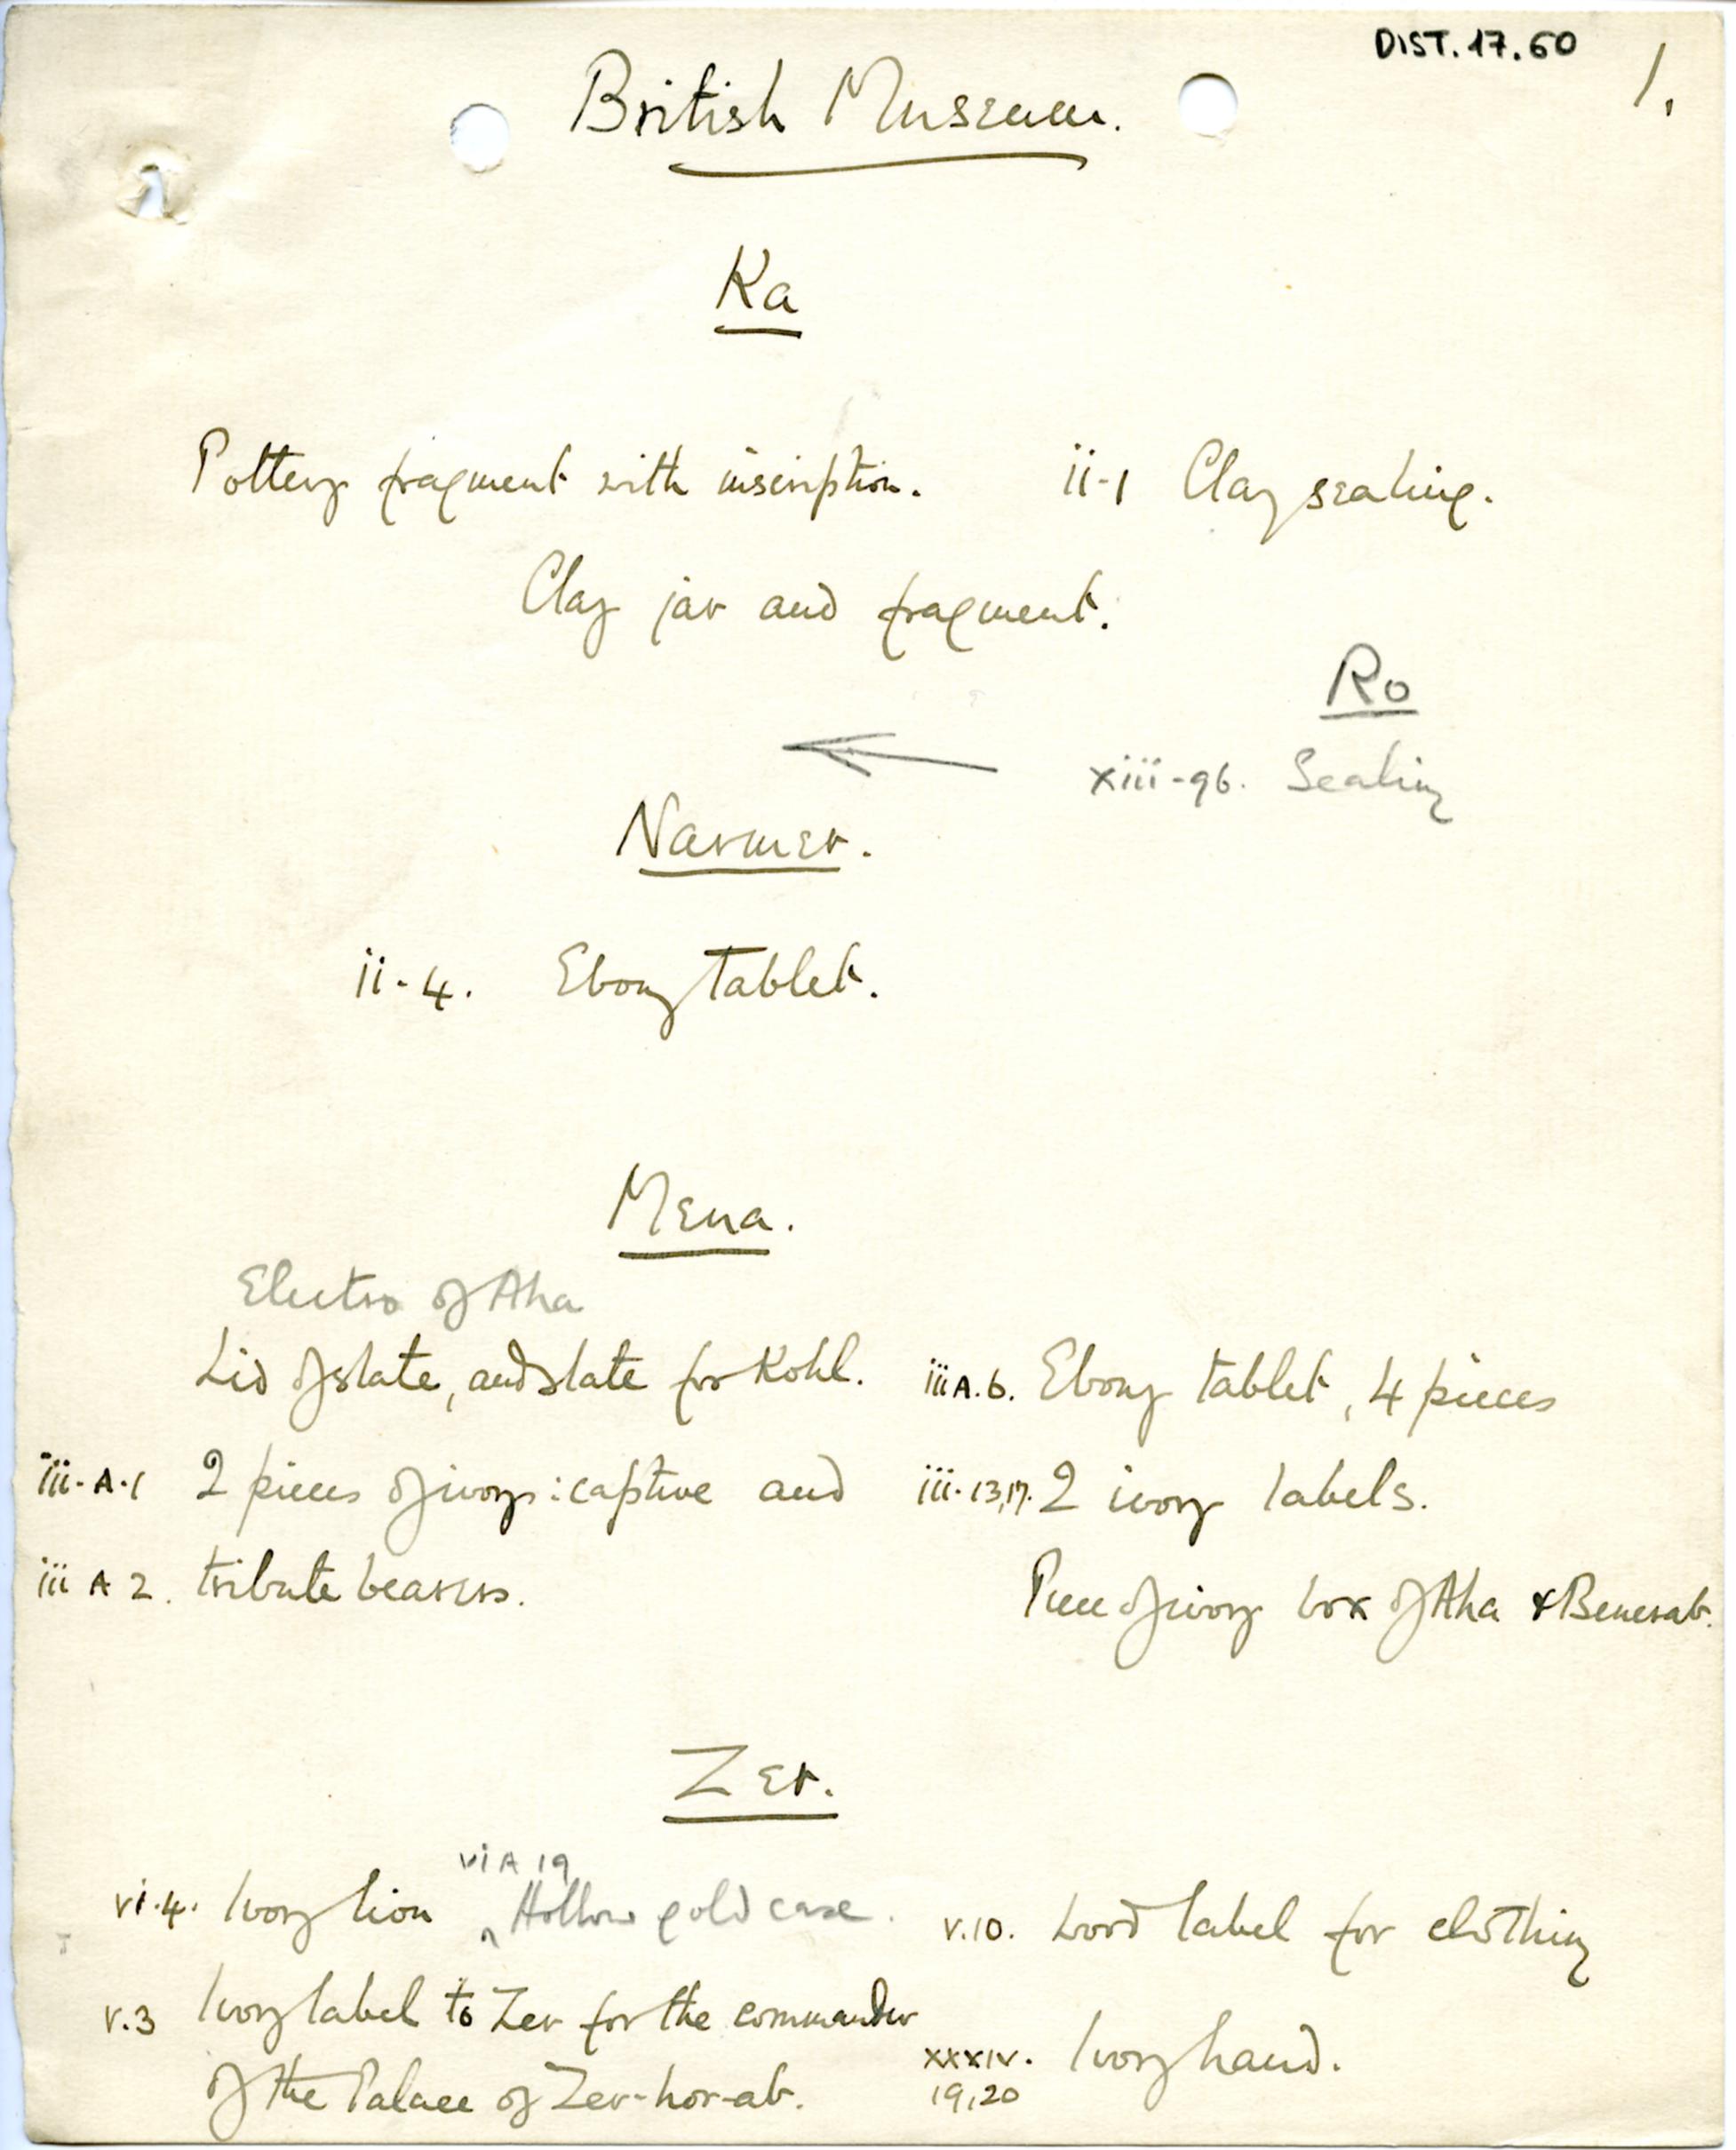 DIST. 17.60
1.
British Museum.
Ka
Pottery fragment with inscription. ii-1 Clay sealing.
Clay jar and fragment.
Ro
xiii-96. Sealing
Narmer.
ii-4. Ebony tablet.
Mena.
Electro of Aha
Lid of slate, and slate for Kohl. iii A.6. Ebony tablet, 4 pieces
iii-A-1 2 pieces of ivory: captive and iii-13,17. 2 ivory labels.
iii A 2. tribute bearers. Piece of ivory box of Aha & Benerab.
Zer.
vi A 19
vi.4. Ivory lion Hollow gold case. v.10. Wood label for clothing
v.3 Ivory label to Zer for the commander
of the Palace of Zer-hor-ab. xxxiv. 19,20 Ivory hand.